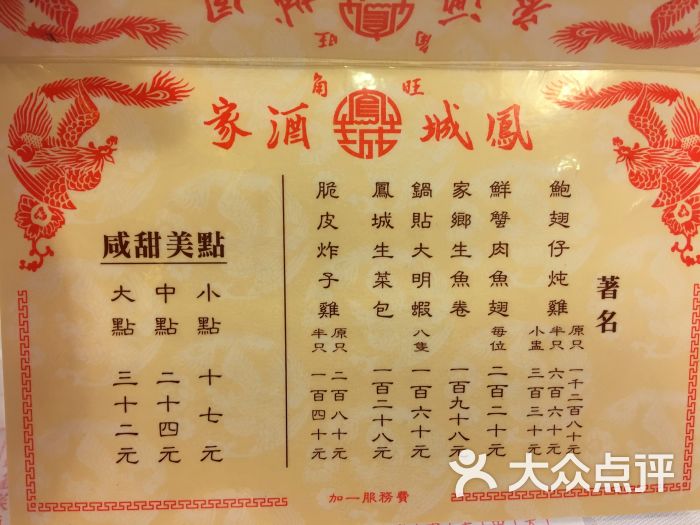 鳳城酒家
旺角
鳳城
著名
鮑翅仔炖雞 原只 一千二百八十元
半只 六百六十元
小盅 三百三十元
鮮蟹肉魚翅 每位 二百二十元
家鄉生魚卷 一百九十八元
鍋貼大明蝦 八隻 一百六十元
鳳城生菜包 一百二十八元
脆皮炸子雞 原只 二百八十元
半只 一百四十元
咸甜美點
小點 十七元
中點 二十四元
大點 三十二元
加一服務費
大众点评